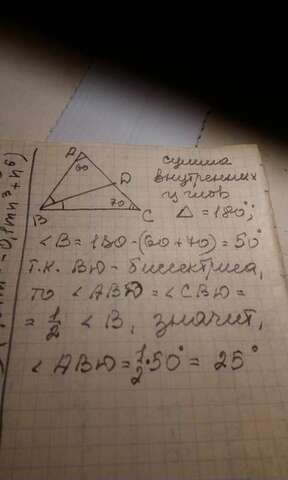 A
60
D
70
B
C
сумма
внутренних
углов
Δ = 180°;
∠B = 180 - (60 + 70) = 50°
т.к. BD - биссектриса,
то ∠ABD = ∠CBD =
= 1/2 ∠B, значит,
∠ABD = 1/2 · 50° = 25°